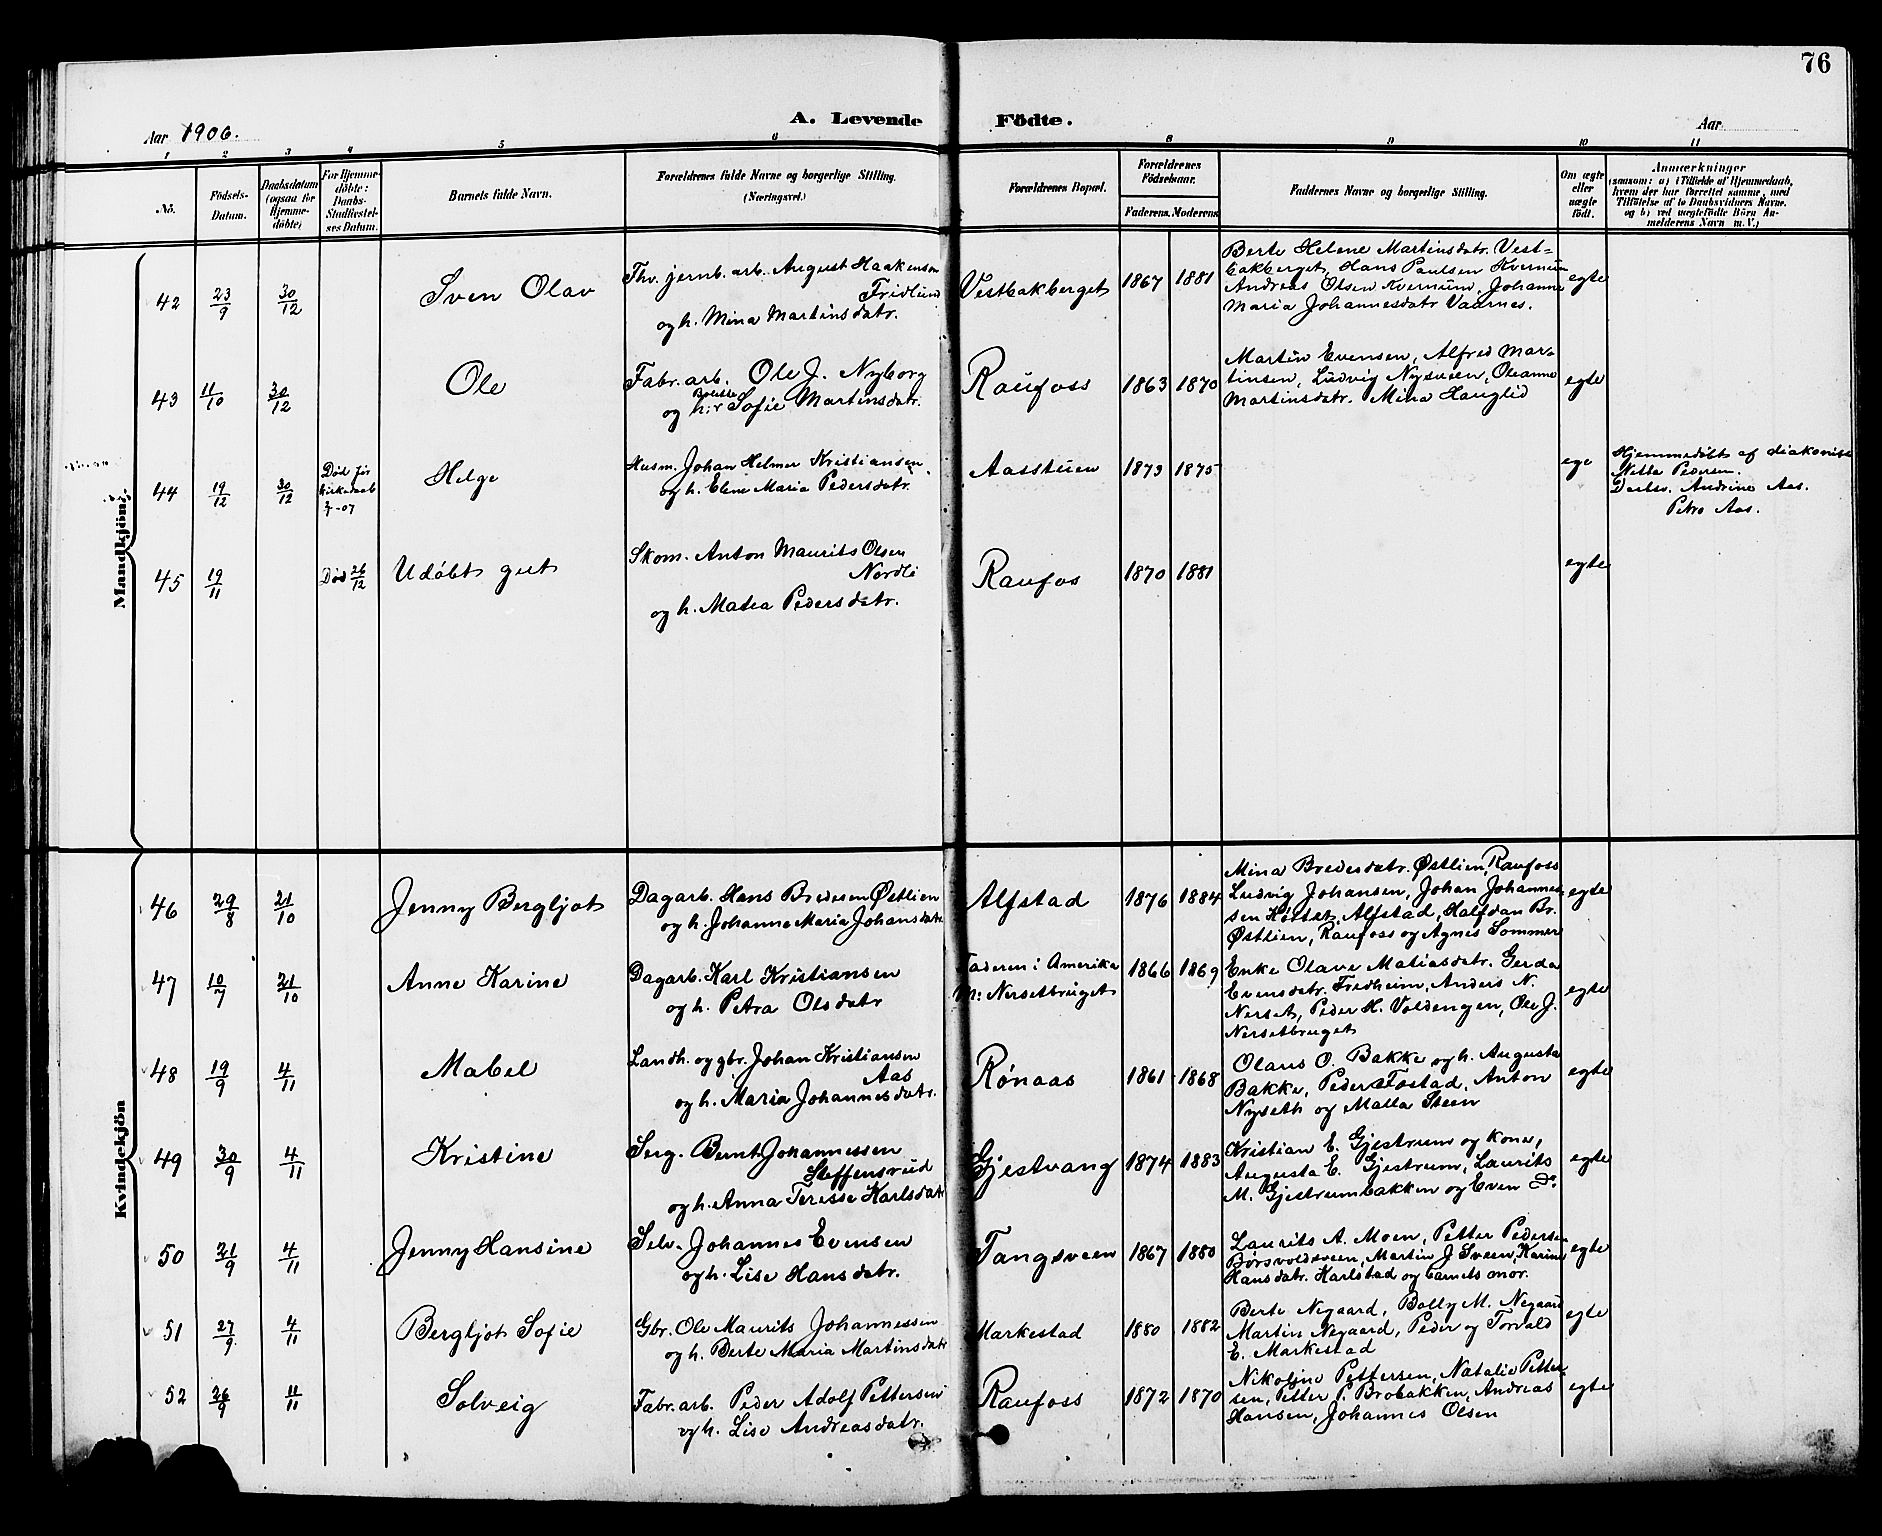 76
A. Levende Födte.
Aar 1906.
Aar
1 2 3 4 5 6 8 9 10 11
Nô.
Födsels-Datum.
Daabsdatum (ogsaa for Hjemme-döbte)
For Hjemme-döbte: Daabs-Stadfæstel-ses Datum.
Barnets fulde Navn.
Forældrenes fulde Navne og borgerlige Stilling. (Næringsvei.)
Forældrenes Bopæl.
Forældrenes Födselsaar.
Faderens. Moderens.
Faddernes Navne og borgerlige Stilling.
Om ægte eller uægte födt.
Anmærkninger
(saasom: a) i Tilfælde af Hjemmedaab, hvem der har forrettet samme, med Tilföielse af to Daabsvidners Navne. og b) ved uægtefödte Börn An-melderens Navn m. V.)
Mandkjön.
42 23/9 30/12 Sven Olav
Thv. jernb. arb. August Haakenson
Fridlund
og h. Mina Martinsdatr.
Vestbakberget 1867 1881
Berte Helene Martinsdatr. Vest-
bakberget, Hans Paulsen Kvernum
Andreas Olsen Kvernum, Johanne
Maria Johannesdatr Vaarnes.
egte
43 11/10 30/12 Ole
Fabr. arb. Ole J. Nyborg
og h. Sofie Martinsdatr.
Raufoss 1863 1870
Martin Evensen, Alfred Mar-
tinsen, Ludvig Nysveen, Oleanne
Martinsdatr. Mina Hauglid
egte
44 19/12 30/12
Død før
kirkedaab
-07
Helge
Husm. Johan Helmer Kristiansen
og h. Elene Maria Pedersdatr.
Aasstuen 1873 1875
ege
Hjemmedøbt af diakonisse
Netta Pedersen.
Andrine Aas.
Petra Aas.
45 19/11 Død 26/12 Udøbt gut
Skom. Anton Maurits Olsen
Nordli
og h. Matea Pedersdatr.
Raufos 1870 1881
egte
Kvindekjön
46 29/8 21/10 Jenny Bergljot
Dagarb. Hans Bredesen Østlien
og h. Johanne Maria Johansdatr
Alfstad 1876 1884
Mina Bredesdatr. Østlien, Raufoss
Ludvig Johansen, Johan Johannes-
sen Alfstad, Halfdan Br.
Østlien, Raufoss og Agnes Sommer
egte
47 10/7 21/10 Anne Karine
Dagarb. Karl Kristiansen
og h. Petra Olsdatr
Faderen i Amerika
M: Nersetbruget
1866 1869
Enke Olave Matiasdatr. Gerda
Evensdatr. Fredheim, Anders N.
Nerset, Peder H. Voldengen, Ole J.
Nersetbruget
egte
48 19/9 4/11 Mabel
Landh. og gbr. Johan Kristiansen
Aas
og h. Maria Johannesdatr.
Rønaas 1861 1868
Olaus O. Bakke og h. Augusta
Bakke, Peder Fostad, Anton
Nyseth og Malla Steen
egte
49 30/9 4/11 Kristine
Serg. Bernt Johannessen
Steffensrud
og h. Anna Teresse Karlsdatr
Gjestvang 1874 1883
Kristian E. Gjestrum og kone,
Augusta E. Gjestrum, Laurits
M. Gjestrumbakken og Even do.
egte
50 21/9 4/11 Jenny Hansine
Selv. Johannes Evensen
og h. Lise Hansdatr.
Tangsveen 1867 1880
Laurits A. Moen, Petter Pedersen
Børsvoldsveen, Martin J. Sveen, Karine
Hansdatr. Karlstad og barnets mor.
egte
51 27/9 4/11 Bergljot Sofie
Gbr. Ole Maurits Johannessen
og h. Berte Maria Martinsdatr
Markestad 1880 1882
Berte Negaard, Bolly M. Negaard
Martin Negaard, Peder og Torvald
E. Markestad
egte
52 26/9 11/11 Solveig
Fabr. arb. Peder Adolf Pettersen
og h. Lise Andreasdatr.
Raufoss 1872 1870
Nikoline Pettersen, Natalie Petter-
sen, Petter P. Brobakken, Andreas
Hansen, Johannes Olsen
egte